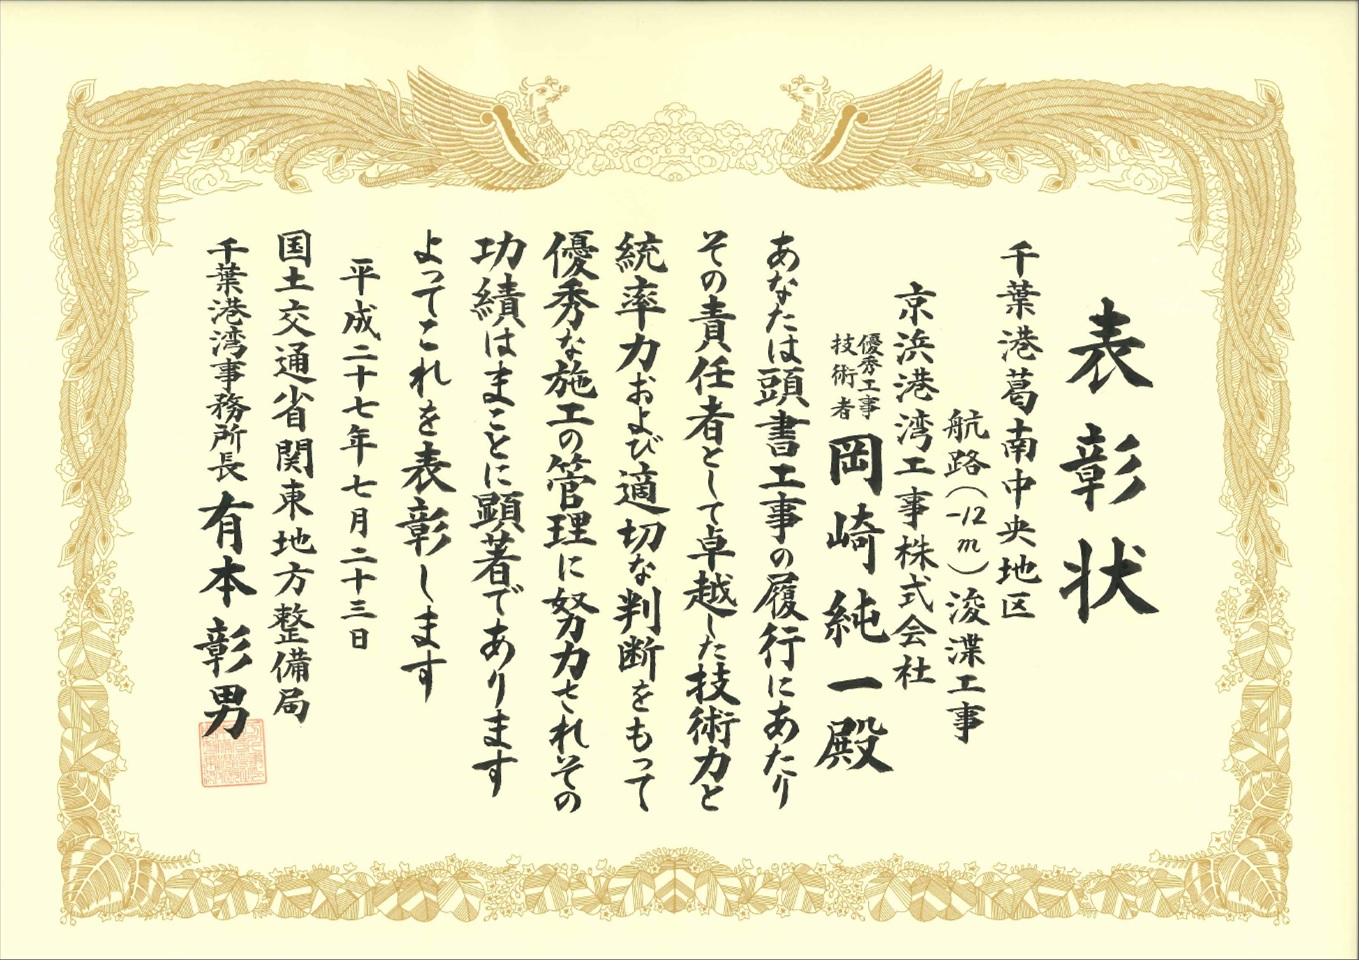 表彰状
千葉港葛南中央地区
航路(-12m)浚渫工事
京浜港湾工事株式会社
優秀工事
技術者
岡崎純一殿
あなたは頭書工事の履行にあたり
その責任者として卓越した技術力と
統率力および適切な判断をもって
優秀な施工の管理に努力されその
功績はまことに顕著であります
よってこれを表彰します
平成二十七年七月二十三日
国土交通省関東地方整備局
千葉港湾事務所長 有本彰男